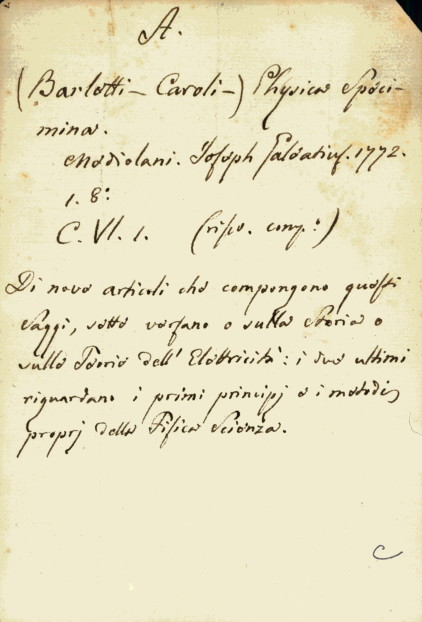 A.
(Barlotti - Caroli -) Physica Speci-
mina.
Mediolani. Joseph Galeatius. 1772.
1. 8.º
C. VI. 1. (risp. comp.º)
Di nove articoli che compongono questi
Saggi, sette versano o sulla Storia o
sulla Teoria dell' Elettricità: i due ultimi
riguardano i primi principj e i metodi
proprj della Fisica Scienza.
C